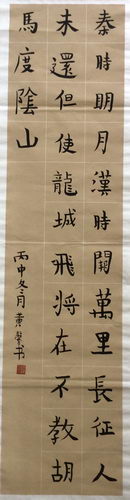 秦時明月漢時關萬里長征人
未還但使龍城飛將在不教胡
馬度陰山
丙申冬月黄书